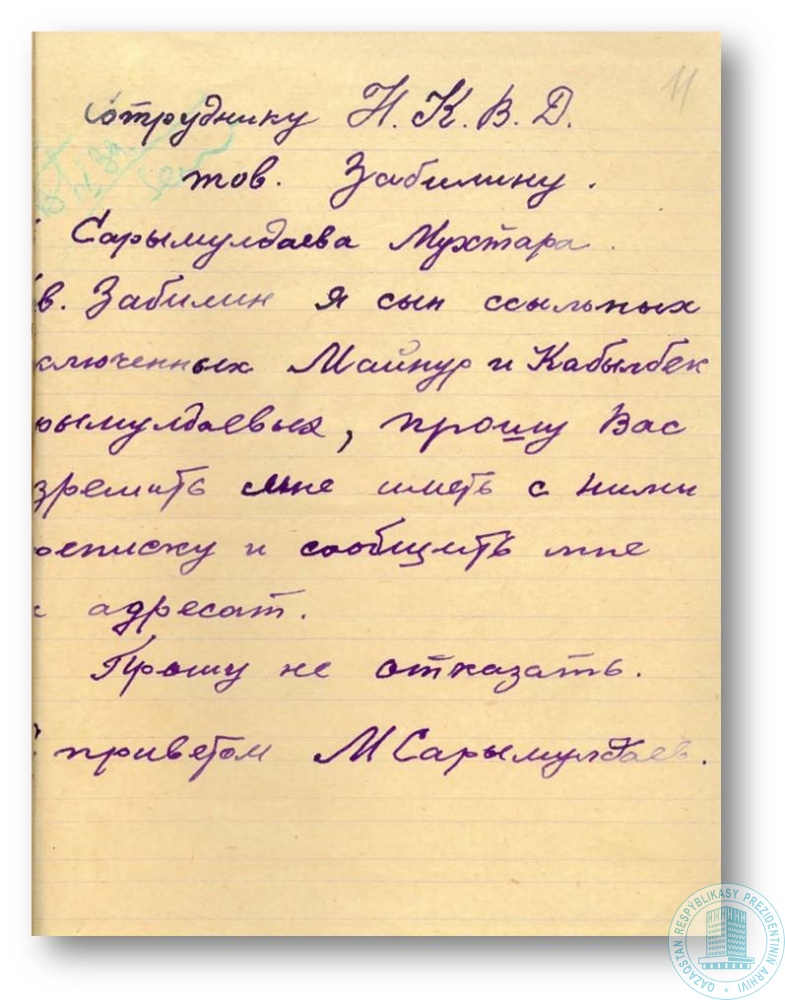 11
Сотруднику Н. К. В. Д.
тов. Забилину.
Сарымулдаева Мухтара.
в. Забилин я сын ссыльных
ключенных Майнур и Кабылбек
рымулдаевых, прошу Вас
зрешить мне иметь с ними
реписку и сообщить мне
х адресат.
Прошу не отказать.
С приветом М Сарымулдаев.
QAZAQSTAN RESPÝBLIKASY PREZIDENTINIŃ ARHIVI